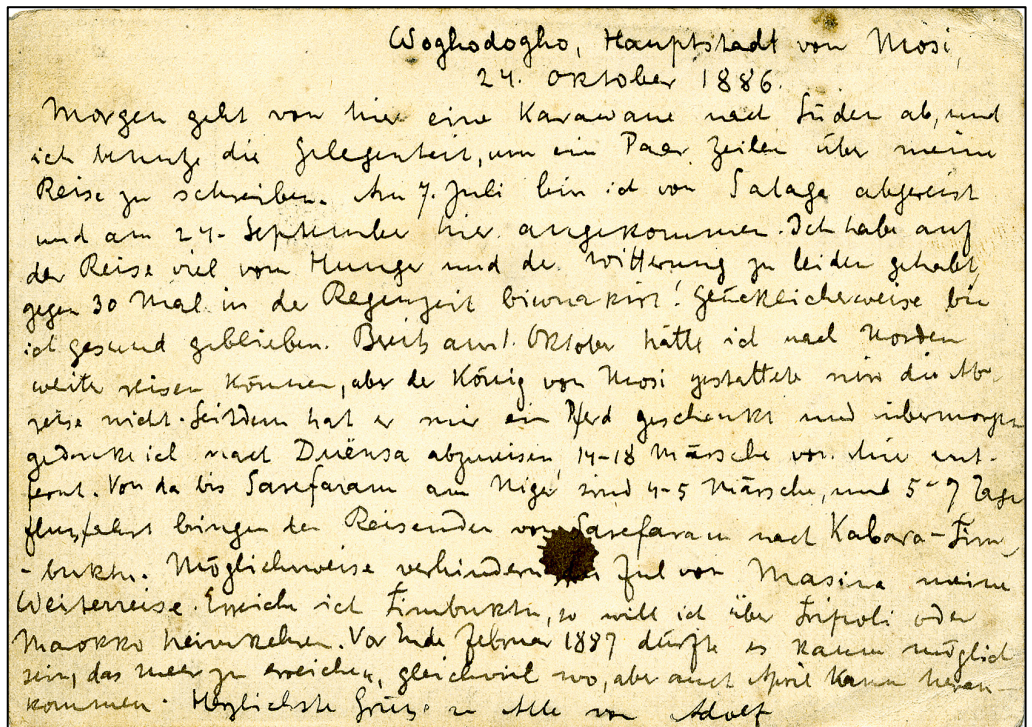 Woghodogho, Hauptstadt von Mosi,
24. Oktober 1886.
Morgen geht von hier eine Karawane nach Süden ab, und
ich benutze die Gelegenheit, um ein Paar Zeilen über meine
Reise zu schreiben. Am 7. Juli bin ich von Salaga abgereist
und am 24. September hier angekommen. Ich habe auf
der Reise viel vom Hunger und der Witterung zu leiden gehabt,
gegen 30 Mal in der Regenzeit biwuakirt! Glücklicherweise bin
ich gesund geblieben. Bereits am 1. Oktober hätte ich nach Norden
weiter reisen können, aber der König von Mosi gestattete mir die Ab-
reise nicht. Seitdem hat er mir ein Pferd geschenkt und übermorgen
gedenke ich nach Duënsa abzureisen, 14-18 Märsche von hier ent-
fernt. Von da bis Sarefaram am Niger sind 4-5 Märsche, und 5-7 Tage
Flussfahrt bringen den Reisenden von Sarefaram nach Kabara-Tim-
-buktu. Möglicherweise verhindern Ful von Masina meine
Weiterreise. Erreiche ich Timbuktu, so will ich über Tripoli oder
Marokko heimkehren. Vor Ende Februar 1887 dürfte es kaum möglich
sein, das Meer zu erreichen, gleichviel wo, aber auch April kann heran-
kommen. Herzlichste Grüße an Alle von Adolf